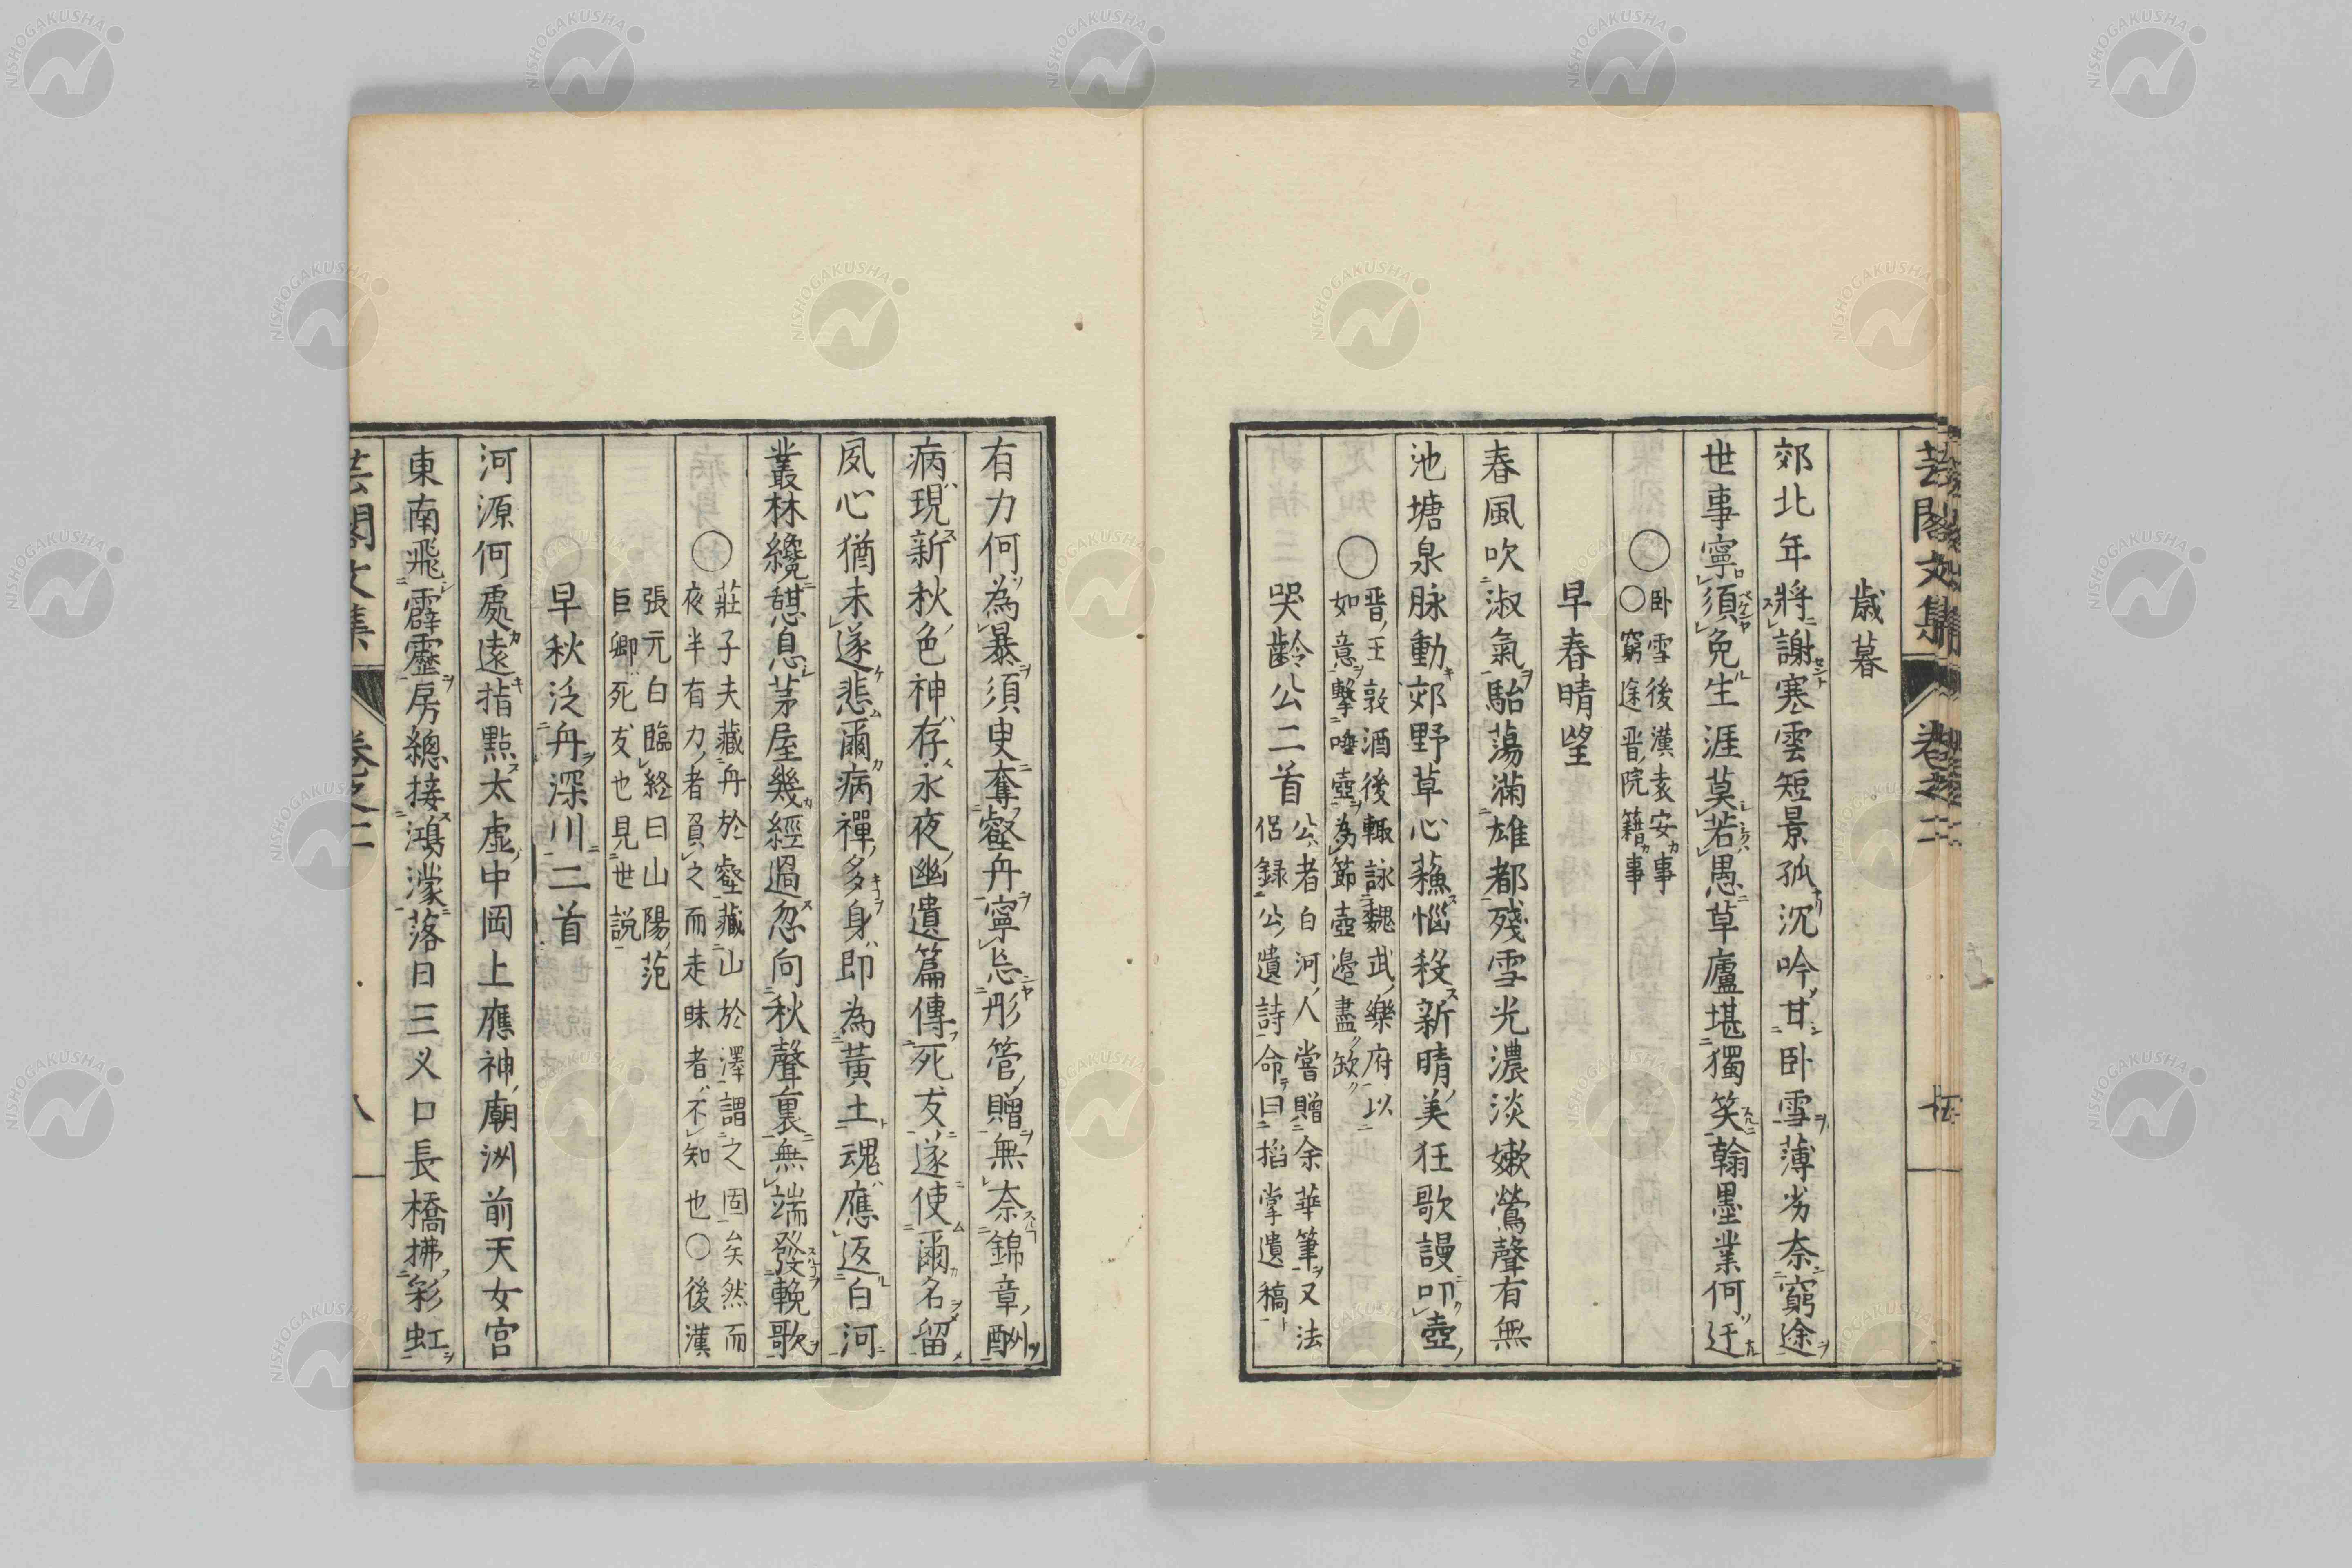 芸閣文集 卷之二
歳暮
郊北年將謝寒雲短景孤沉吟甘卧雪薄劣奈窮途
世事寧須免生涯莫若愚草廬堪獨笑翰墨業何迂
○卧雪後漢袁安事
○窮途晋阮籍事
早春晴望
春風吹淑氣駘蕩滿雄都殘雪光濃淡嫩鶯聲有無
池塘泉脉動郊野草心蘓惱殺新晴美狂歌謾叩壺
○晋王敦酒後輙詠魏武樂府以
如意擊唾壺為節壺邉盡缺
哭齡公二首
公者白河人嘗贈余華筆又法
侶録公遺詩命曰掐掌遺稿
有力何為暴須臾奪壑舟寧忘彤管贈無奈錦章酬
病現新秋色神存永夜幽遺篇傳死友遂使爾名留
夙心猶未遂悲爾病禪多身即為黃土魂應返白河
叢林纔憇息茅屋幾經過忽向秋聲裏無端發輓歌
○莊子夫藏舟於壑藏山於澤謂之固矣然而
夜半有力者負之而走昧者不知也○後漢
張元白臨終曰山陽范
巨卿死友也見世說
早秋泛舟深川二首
河源何處遠指點太虛中岡上應神廟洲前天女宮
東南飛霹靂房總接鴻濛落日三义口長橋拂彩虹
芸閣文集 卷之二 八